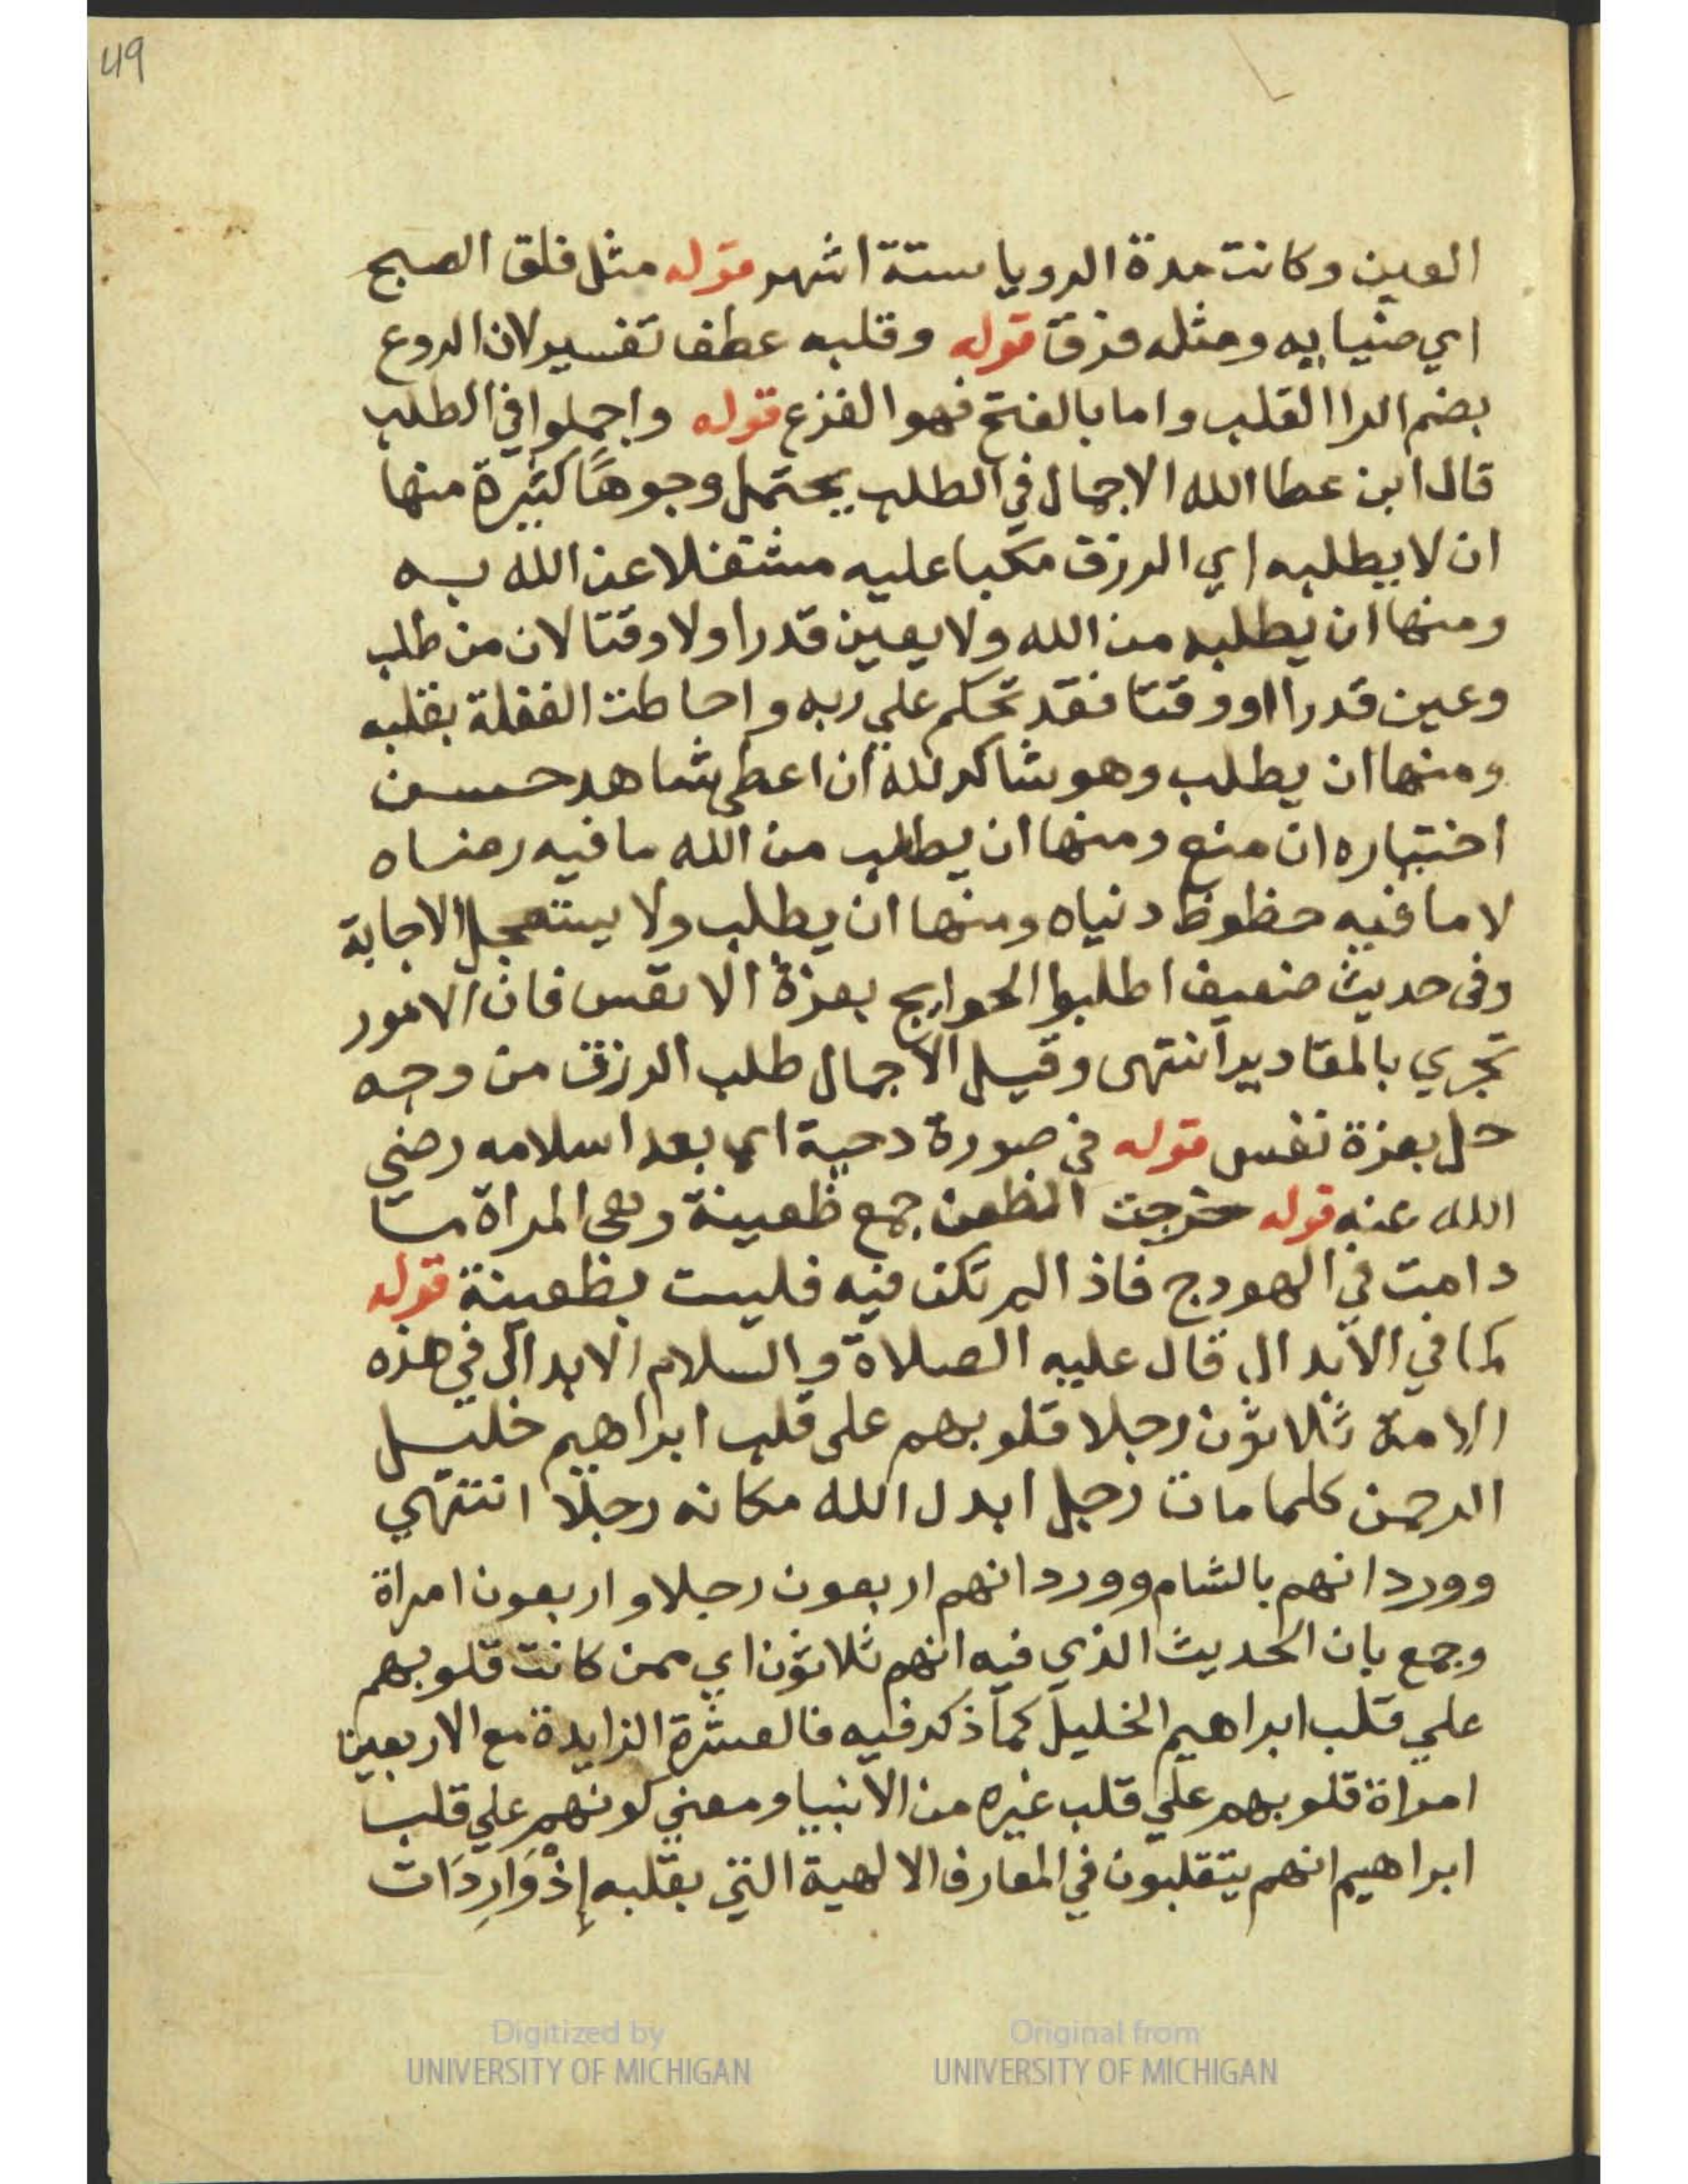 49
العين وكانت مدة الرويا ستة اشهر قوله مثل فلق الصبح
اي ضيايه ومثله فرق قوله وقلبه عطف تفسير لان الروع
بضم الرا القلب واما بالفتح فهو الفزع قوله واجملوا في الطلب
قال ابن عطا الله الاجمال في الطلب يحتمل وجوهًا كثيرة منها
ان لا يطلبه اي الرزق مكبا عليه مشتغلا عن الله به
ومنها ان يطلبه من الله ولا يعين قدرا ولا وقتا لان من طلب
وعين قدرا او وقتا فقد تحكم علي ربه واحاطت الغفلة بقلبه
ومنها ان يطلب وهو شاكر لله ان اعطي شاهد حسن
اختياره ان منع ومنها ان يطلب من الله ما فيه رضاه
لا ما فيه حظوظ دنياه ومنها ان يطلب ولا يستعجل الاجابة
وفى حديث ضعيف اطلبوا الحوايج بعزة الانفس فان الامور
تجري بالمقادير انتهى وقيل الاجمال طلب الرزق من وجه
حل بعزة نفس قوله في صورة دحية اي بعد اسلامه رضي
الله عنه قوله خرجت الظعن جمع ظعينة وهي المراة ما
دامت في الهودج فاذا لم تكن فيه فليست بظعينة قوله
كما في الابدال قال عليه الصلاة والسلام الابدال في هذه
الامة ثلاثون رجلا قلوبهم على قلب ابراهيم خليل
الرحمن كلما مات رجل ابدل الله مكانه رجلا انتهي
وورد انهم بالشام وورد انهم اربعون رجلا واربعون امراة
وجمع بان الحديث الذي فيه انهم ثلاثون اي ممن كانت قلوبهم
علي قلب ابراهيم الخليل كما ذكر فيه فالعشرة الزايدة مع الاربعين
امراة قلوبهم علي قلب غيره من الانبيا ومعني كونهم علي قلب
ابراهيم انهم يتقلبون في المعارف الالهية التي بقلبه إذْ وَارِدَات
Digitized by
UNIVERSITY OF MICHIGAN
Original from
UNIVERSITY OF MICHIGAN